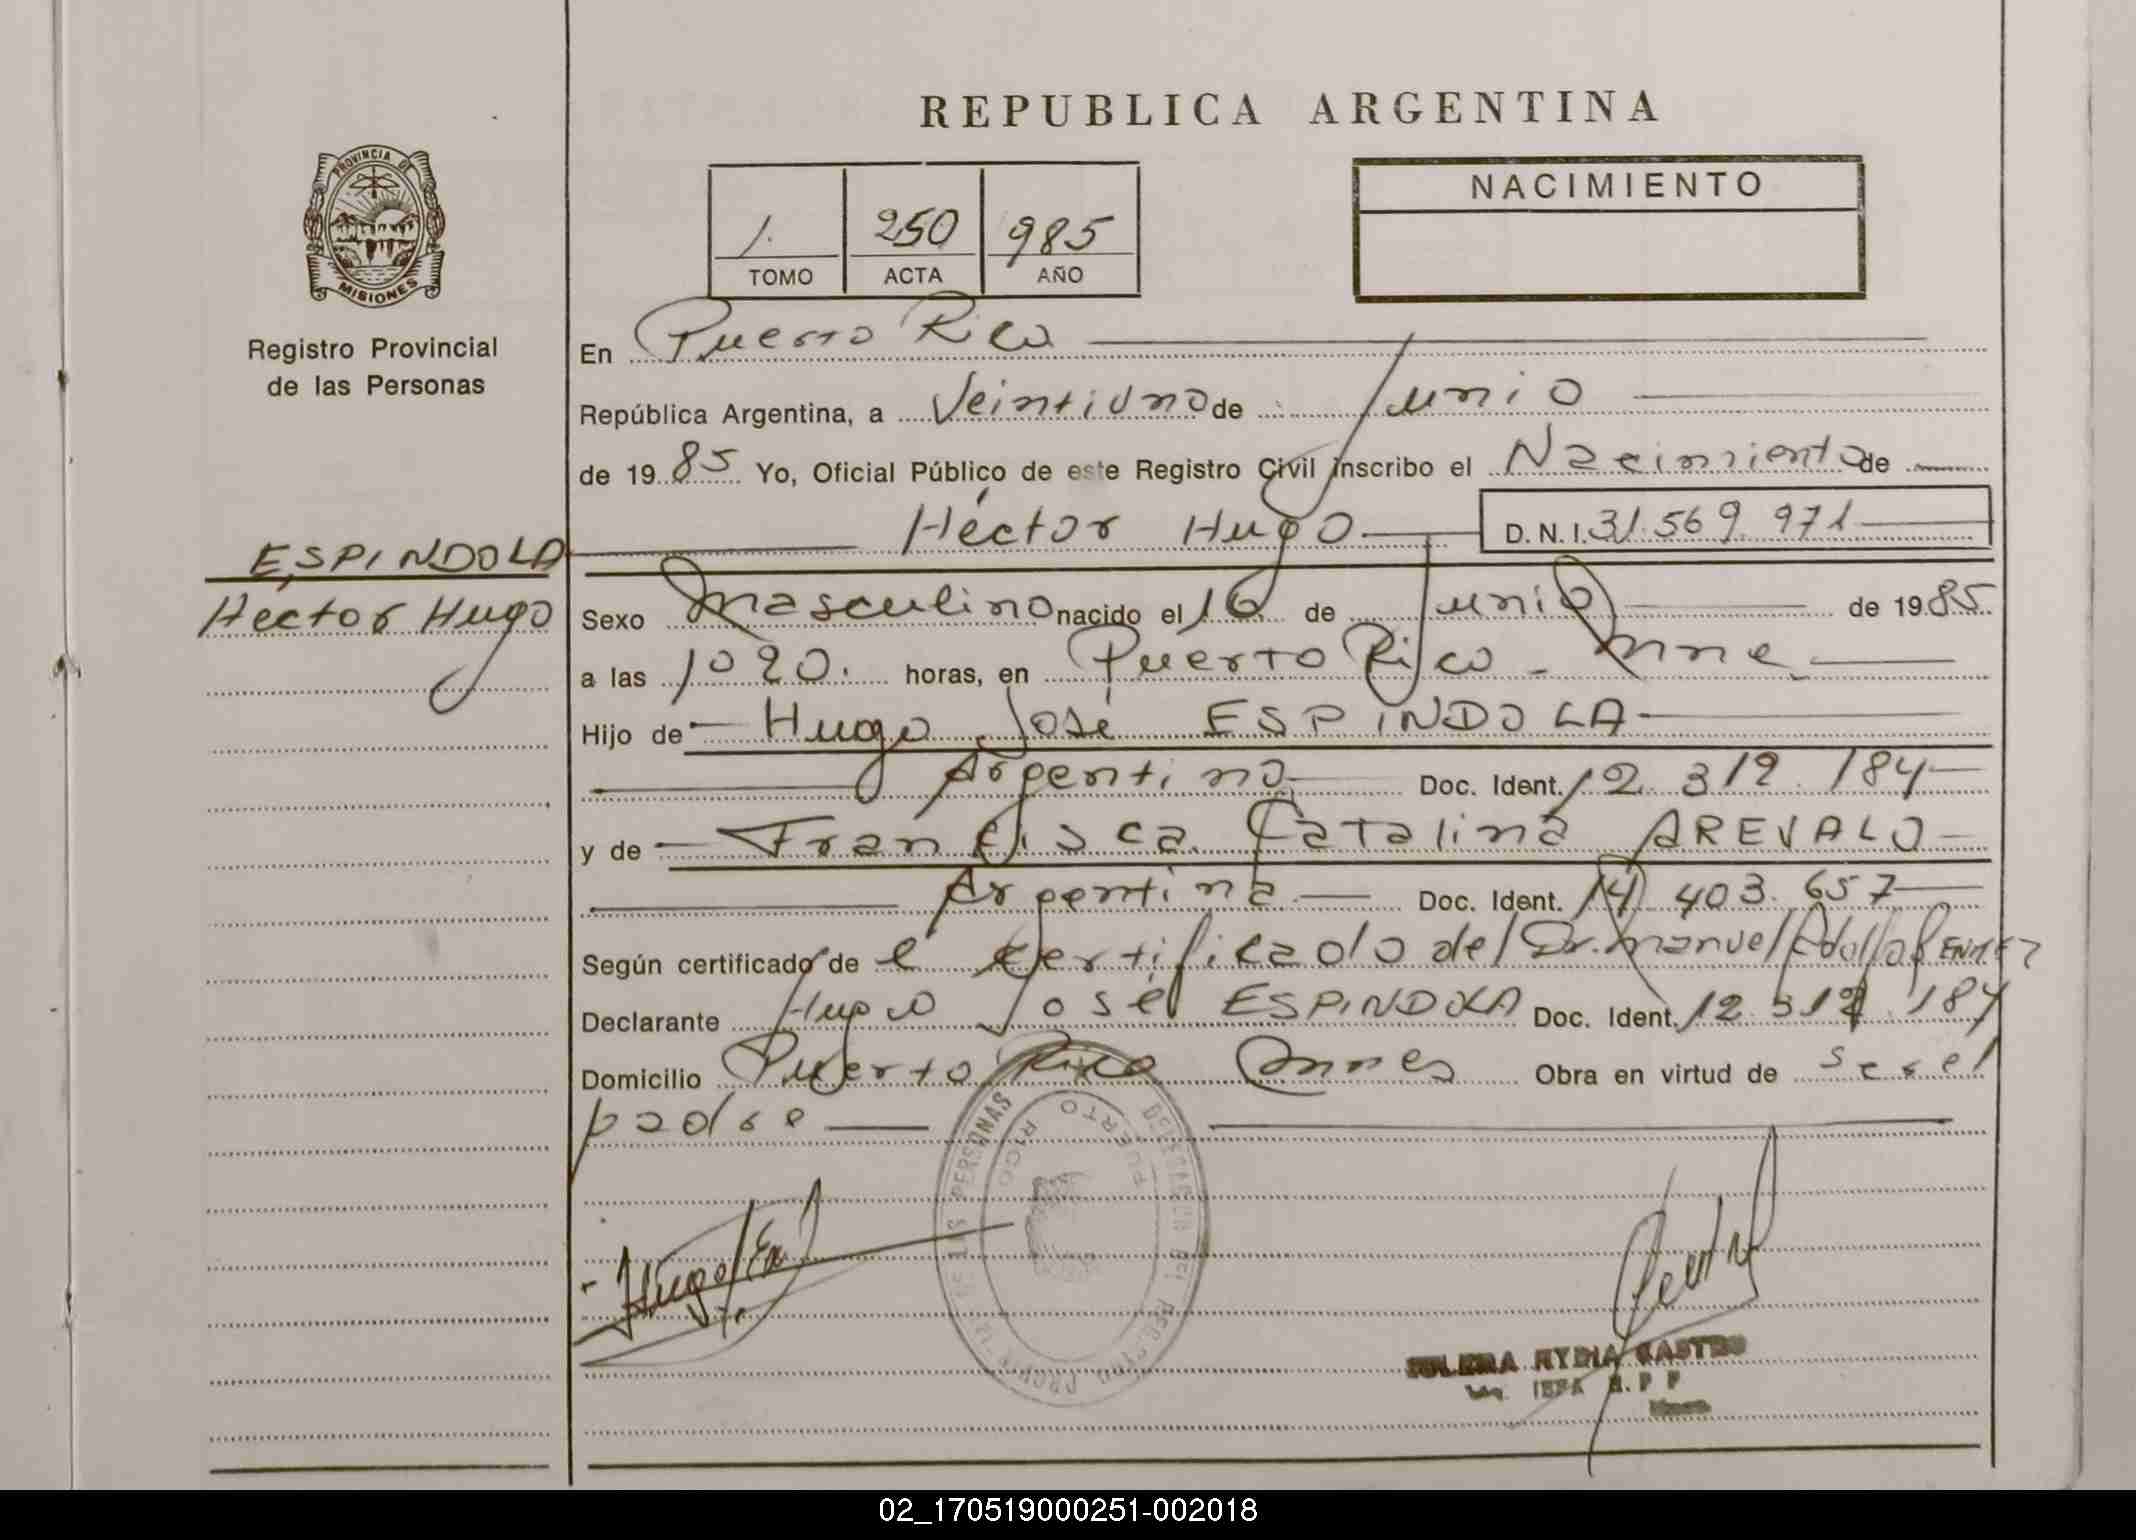 REPUBLICA ARGENTINA
PROVINCIA DE
MISIONES
Registro Provincial
de las Personas
1. 250 985
TOMO ACTA AÑO
NACIMIENTO
En Puerto Rico
República Argentina, a Veintiuno de Junio
de 19 85 Yo, Oficial Público de este Registro Civil inscribo el Nacimiento de
Héctor Hugo D.N.I. 31.569.971
ESPINDOLA
Hector Hugo
Sexo Masculino nacido el 16 de Junio de 19 85
a las 10 20. horas, en Puerto Rico - Mnes
Hijo de Hugo José ESPINDOLA
Argentino Doc. Ident. 12.312.184
y de Francisca Catalina AREVALO
Argentina Doc. Ident. 14.403.657
Según certificado de el certificado del Dr. Manuel
Declarante Hugo José ESPINDOLA Doc. Ident. 12.312.184
Domicilio Puerto Rico Mnes Obra en virtud de ser el
padre
DELEGACION DEL REGISTRO PROVINCIAL DE LAS PERSONAS
PUERTO RICO
CASTRO
02_170519000251-002018